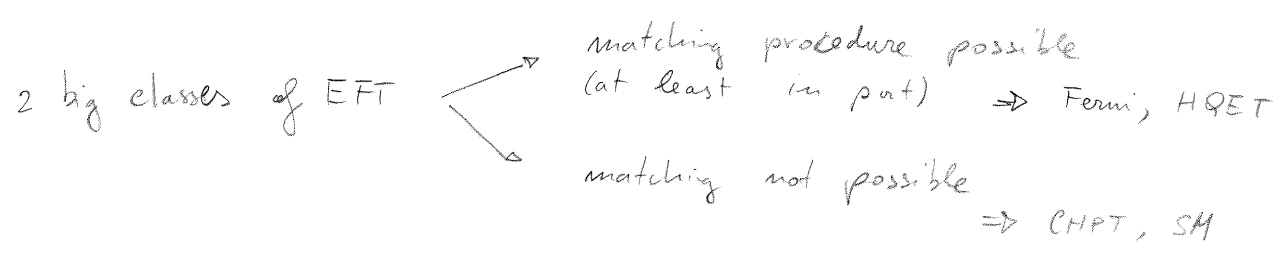 2 big classes of EFT
matching procedure possible
(at least in part) ⇒ Fermi, HQET
matching not possible
⇒ CHPT, SM